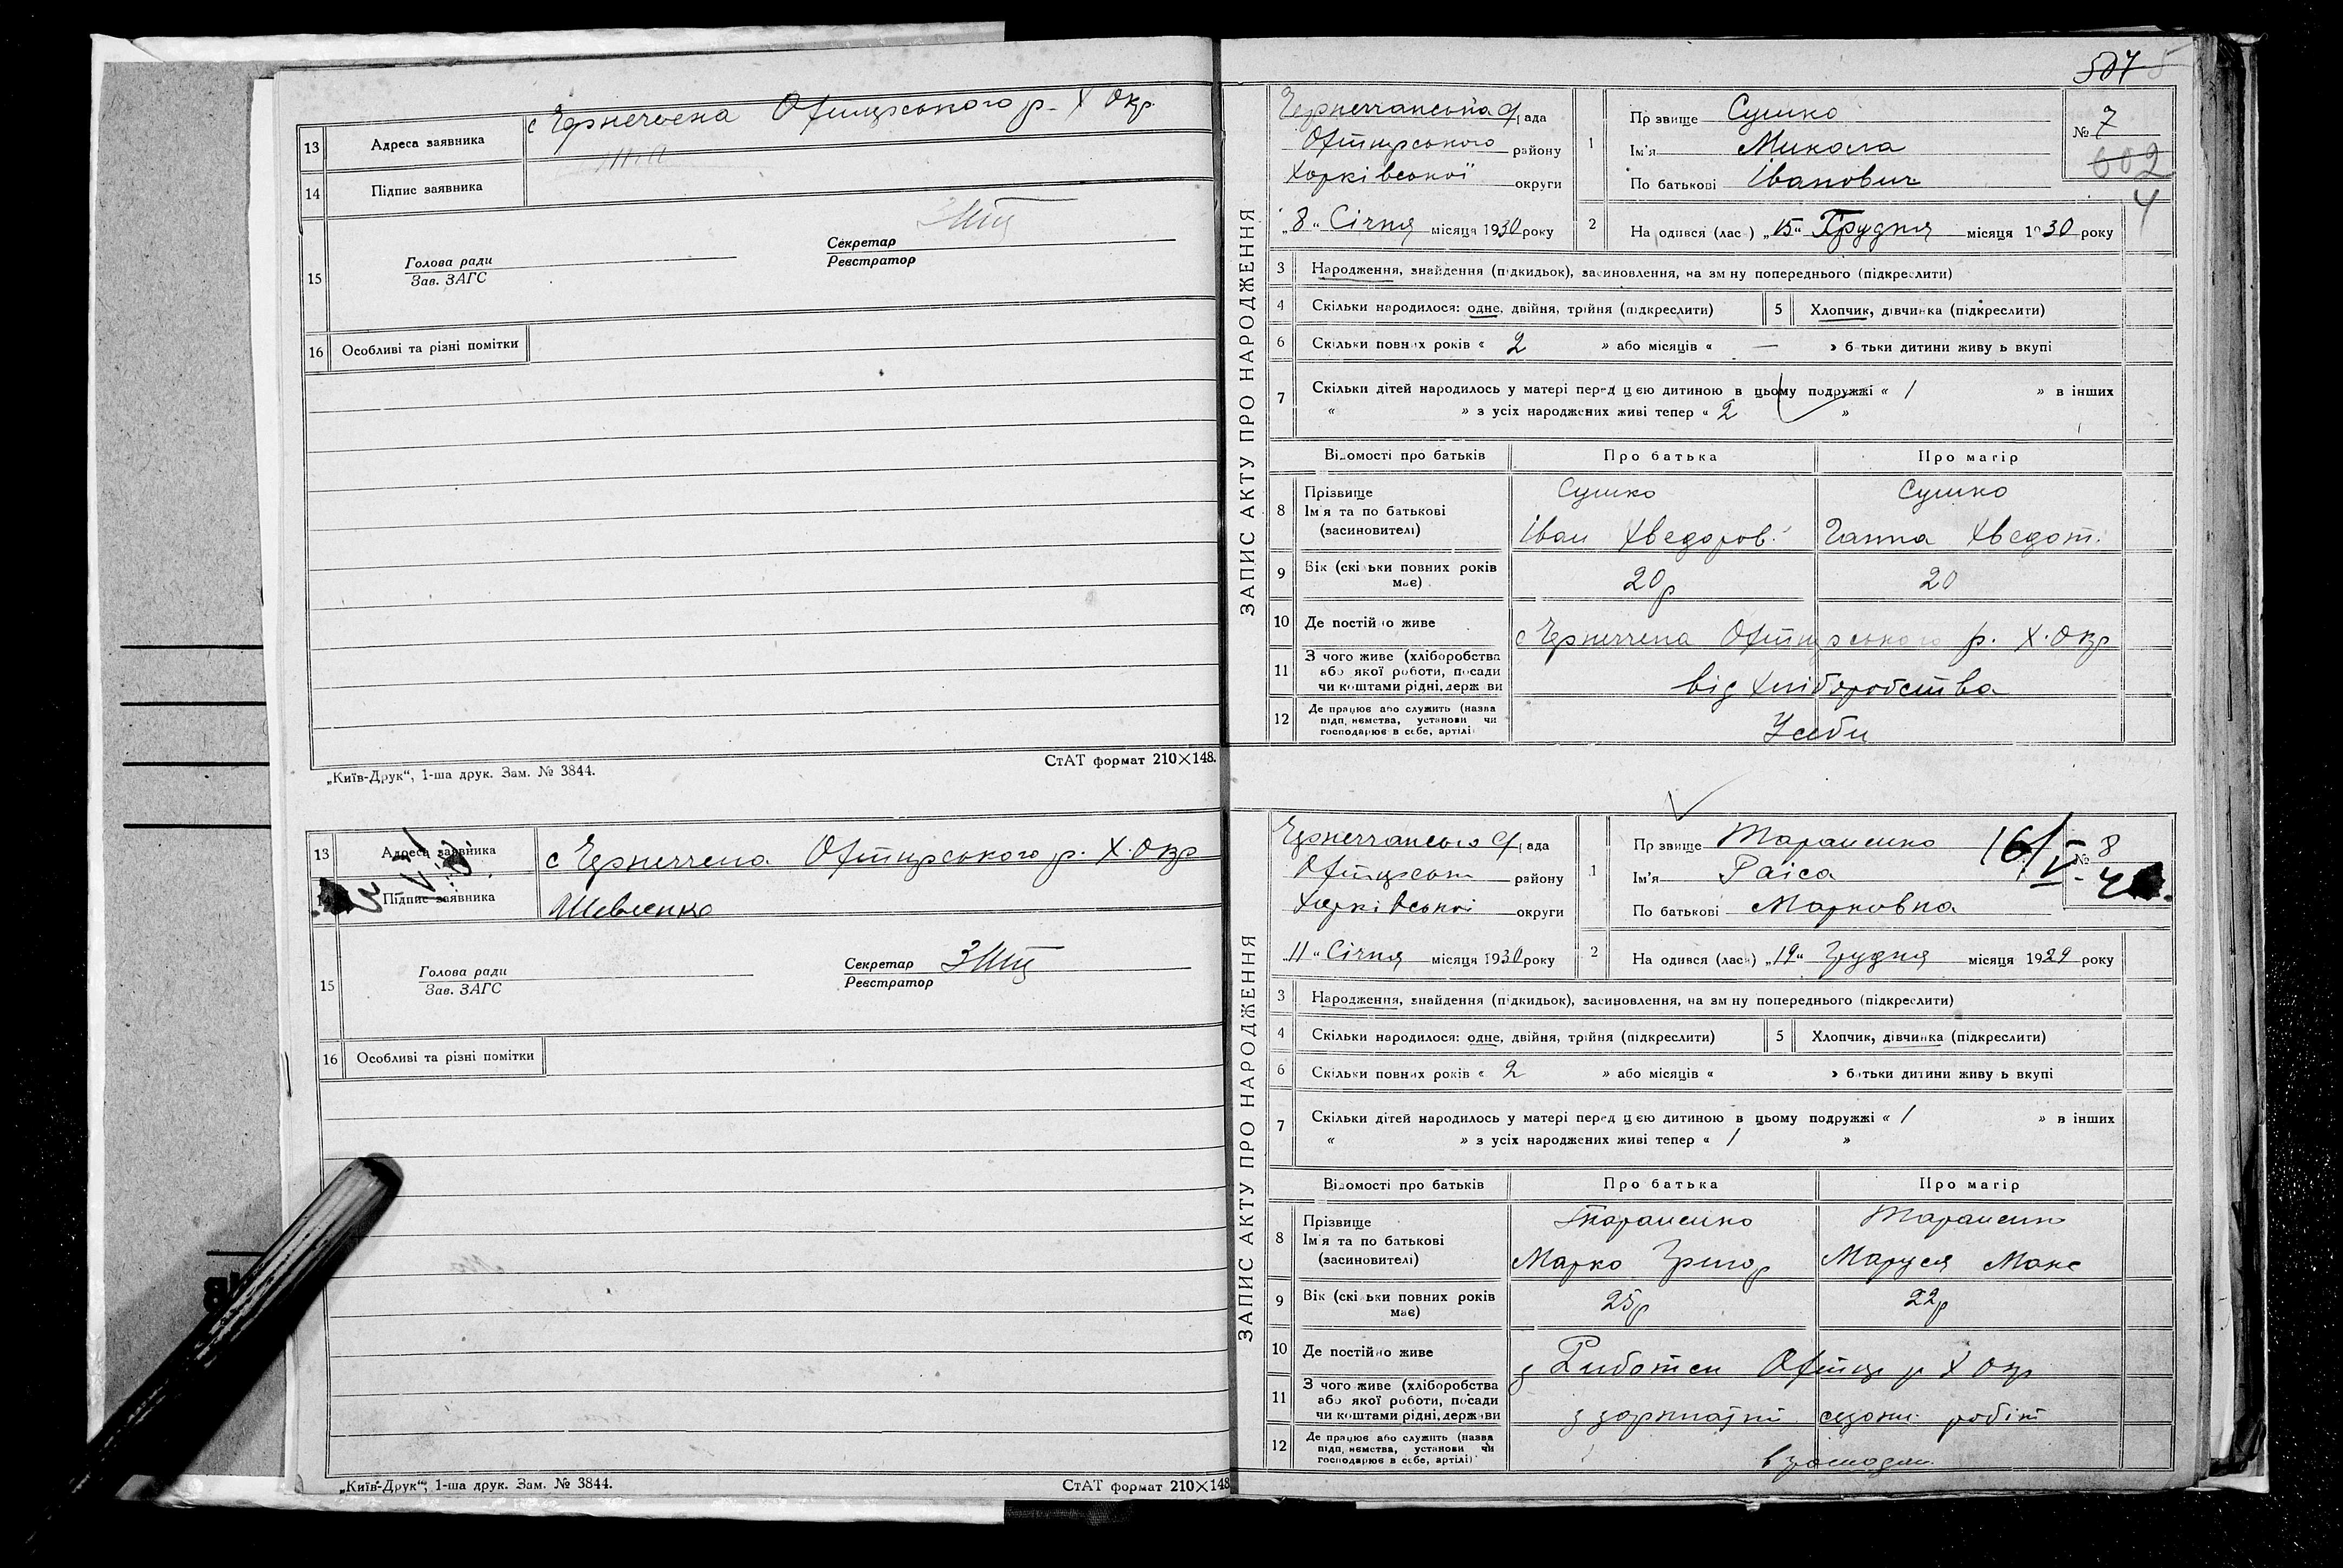 13 Адреса заявника с Чернеччена Охтирського р. Х Окр.
14 Підпис заявника
15 Голова ради
Зав. ЗАГС
Секретар
Реєстратор
16 Особливі та різні помітки
„Київ-Друк“, 1-ша друк. Зам. № 3844.
СтАТ формат 210×148.
13 Адреса заявника с Чернеччена Охтирського р. Х. Окр
Підпис заявника Шевченко
15 Голова ради
Зав. ЗАГС
Секретар
Реєстратор
16 Особливі та різні помітки
„Київ-Друк“, 1-ша друк. Зам. № 3844.
СтАТ формат 210×148
507 5
ЗАПИС АКТУ ПРО НАРОДЖЕННЯ
Чернеччанська рада
Охтирського району
Харківської округи
„8“ Січня місяця 1930 року
1 Прізвище Сушко
Ім'я Микола
По батькові Іванович
№ 7
602
4
2 На одився (лас ) „15“ Грудня місяця 1930 року
3 Народження, знайдення (підкидьок), засиновлення, на зм ну попереднього (підкреслити)
4 Скільки народилося: одне, двійня, трійня (підкреслити) 5 Хлопчик, дівчинка (підкреслити)
6 Скільки повних років « 2 » або місяців « — » батьки дитини живу ь вкупі
7 Скільки дітей народилось у матері перед цією дитиною в цьому подружжі « 1 » в інших
« » з усіх народжених живі тепер « 2 »
Відомості про батьків Про батька Про матір
8 Прізвище Сушко Сушко
Ім'я та по батькові
(засиновителі) Іван Хведоров. Ганна Хведот.
9 Вік (скільки повних років має) 20р 20
10 Де постійно живе с Чернеччена Охтирського р. Х. Окр
11 З чого живе (хліборобства
або якої роботи, посади
чи коштами рідні, держави від хліборобства
12 Де працює або служить (назва
підп, иємства, установи чи
господарює в себе, артілі) У себи
ЗАПИС АКТУ ПРО НАРОДЖЕННЯ
Чернеччансько рада
Охтирськ району
Харківської округи
„11“ Січня місяця 1930 року
1 Прізвище Тараненко
Ім'я Раїса
По батькові Марковна
16/V- 4
№ 8
2 На одився (лась) „19“ Грудня місяця 1929 року
3 Народження, знайдення (підкидьок), засиновлення, на зм ну попереднього (підкреслити)
4 Скільки народилося: одне, двійня, трійня (підкреслити) 5 Хлопчик, дівчинка (підкреслити)
6 Скільки повних років « 2 » або місяців « » батьки дитини живу ь вкупі
7 Скільки дітей народилось у матері перед цією дитиною в цьому подружжі « 1 » в інших
« » з усіх народжених живі тепер « 1 »
Відомості про батьків Про батька Про матір
8 Прізвище Тараненко Тараненко
Ім'я та по батькові
(засиновителі) Марко Григор Маруся Макс
9 Вік (скільки повних років має) 25р 22р
10 Де постійно живе Риботен Охтир р Х Окр
11 З чого живе (хліборобства
або якої роботи, посади
чи коштами рідні, держави з зарплатні сезонн. робіт
12 Де працює або служить (назва
підп, иємства, установи чи
господарює в себе, артілі)